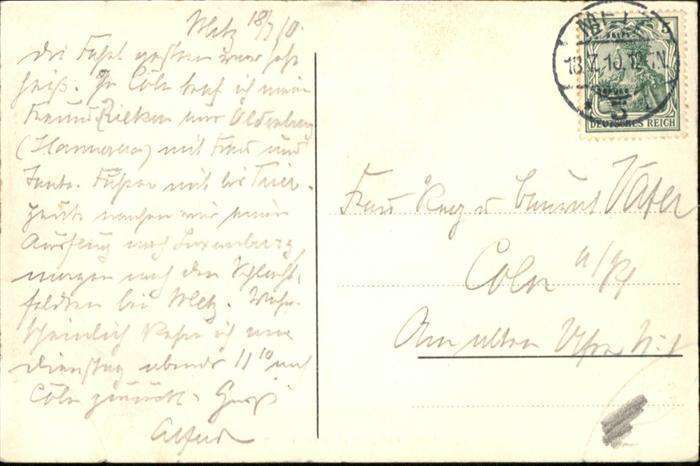 Metz 18/7 10.
Die Fahrt gestern war sehr
heiß. In Cöln traf ich meinen
Freund aus Oldenburg
(Hannover) mit Frau und
Tante. Fuhren mit bis Trier.
Heute machen wir einen
Ausflug nach Luxemburg,
morgen nach den Schlacht-
feldern bei Metz. Wahr-
scheinlich kehre ich am
Dienstag abends 11 10 nach
Cöln zurück. Gruß
Alfred
METZ
18.7.10.12-N
DEUTSCHES REICH
Frau
Cöln a/Rh
Am alten Ufer